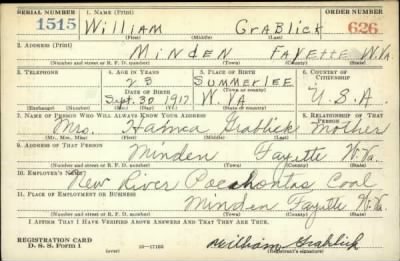 SERIAL NUMBER 1. NAME (Print) ORDER NUMBER
1515 WILLIAM GRABLICK 626
(First) (Middle) (Last)
2. ADDRESS (Print)
MINDEN FAYETTE W.VA
(Number and street or R. F. D. number) (Town) (County) (State)
3. TELEPHONE 4. AGE IN YEARS 5. PLACE OF BIRTH 6. COUNTRY OF CITIZENSHIP
23 SUMMERLEE
DATE OF BIRTH (Town or county)
Sept. 30 1917 W. VA U.S.A.
(Exchange) (Number) (Mo.) (Day) (Yr.) (State or country)
7. NAME OF PERSON WHO WILL ALWAYS KNOW YOUR ADDRESS 8. RELATIONSHIP OF THAT PERSON
Mrs. Grablick Mother
(Mr., Mrs., Miss) (First) (Middle) (Last)
9. ADDRESS OF THAT PERSON
Minden Fayette W. Va.
(Number and street or R. F. D. number) (Town) (County) (State)
10. EMPLOYER'S NAME
New River Pocahontas Coal
11. PLACE OF EMPLOYMENT OR BUSINESS
Minden Fayette W. Va.
(Number and street or R. F. D. number) (Town) (County) (State)
I AFFIRM THAT I HAVE VERIFIED ABOVE ANSWERS AND THAT THEY ARE TRUE.
REGISTRATION CARD
D. S. S. Form 1 (over) 16-17105 William Grablick
(Registrant's signature)